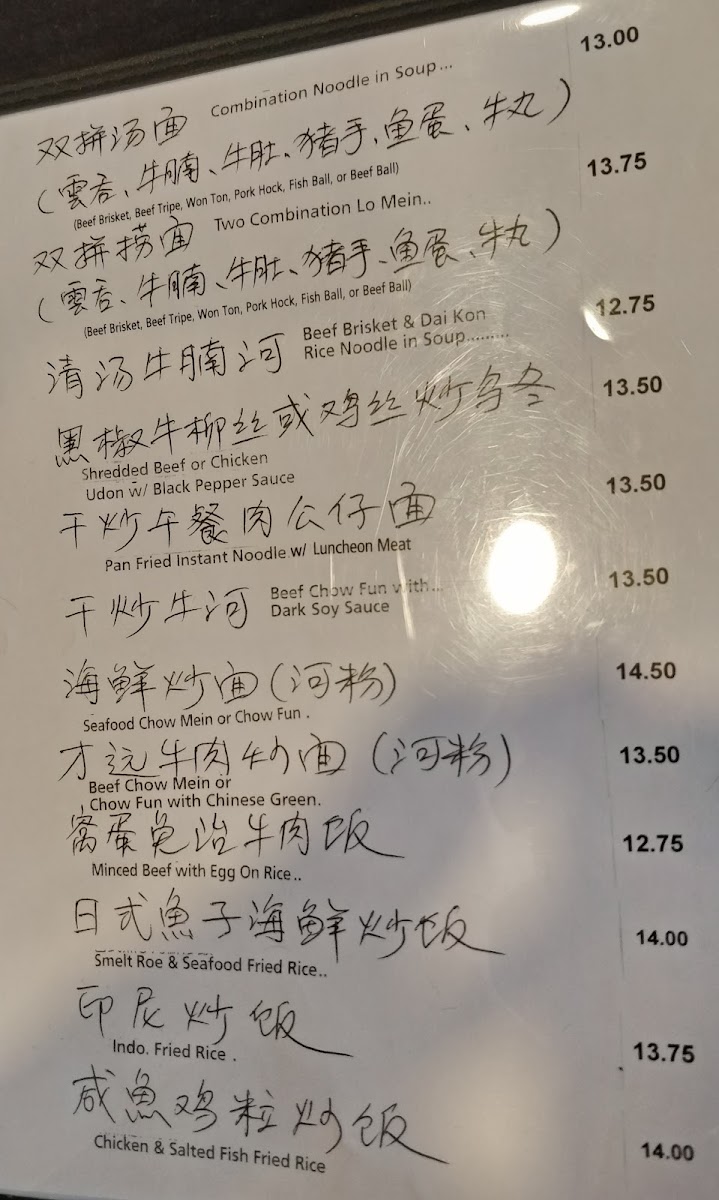 双拼汤面 Combination Noodle in Soup... 13.00
(雲吞、牛腩、牛肚、猪手、鱼蛋、牛丸)
(Beef Brisket, Beef Tripe, Won Ton, Pork Hock, Fish Ball, or Beef Ball)
双拼捞面 Two Combination Lo Mein.. 13.75
(雲吞、牛腩、牛肚、猪手、鱼蛋、牛丸)
(Beef Brisket, Beef Tripe, Won Ton, Pork Hock, Fish Ball, or Beef Ball)
清汤牛腩河 Beef Brisket & Dai Kon 12.75
Rice Noodle in Soup.........
黑椒牛柳丝或鸡丝炒乌冬 13.50
Shredded Beef or Chicken
Udon w/ Black Pepper Sauce
干炒午餐肉公仔面 13.50
Pan Fried Instant Noodle w/ Luncheon Meat
干炒牛河 Beef Chow Fun with... 13.50
Dark Soy Sauce
海鲜炒面(河粉) 14.50
Seafood Chow Mein or Chow Fun .
才远牛肉炒面(河粉) 13.50
Beef Chow Mein or
Chow Fun with Chinese Green.
窩蛋免治牛肉饭 12.75
Minced Beef with Egg On Rice..
日式魚子海鲜炒饭 14.00
Smelt Roe & Seafood Fried Rice..
印尼炒饭
Indo. Fried Rice . 13.75
咸魚鸡粒炒饭
Chicken & Salted Fish Fried Rice 14.00